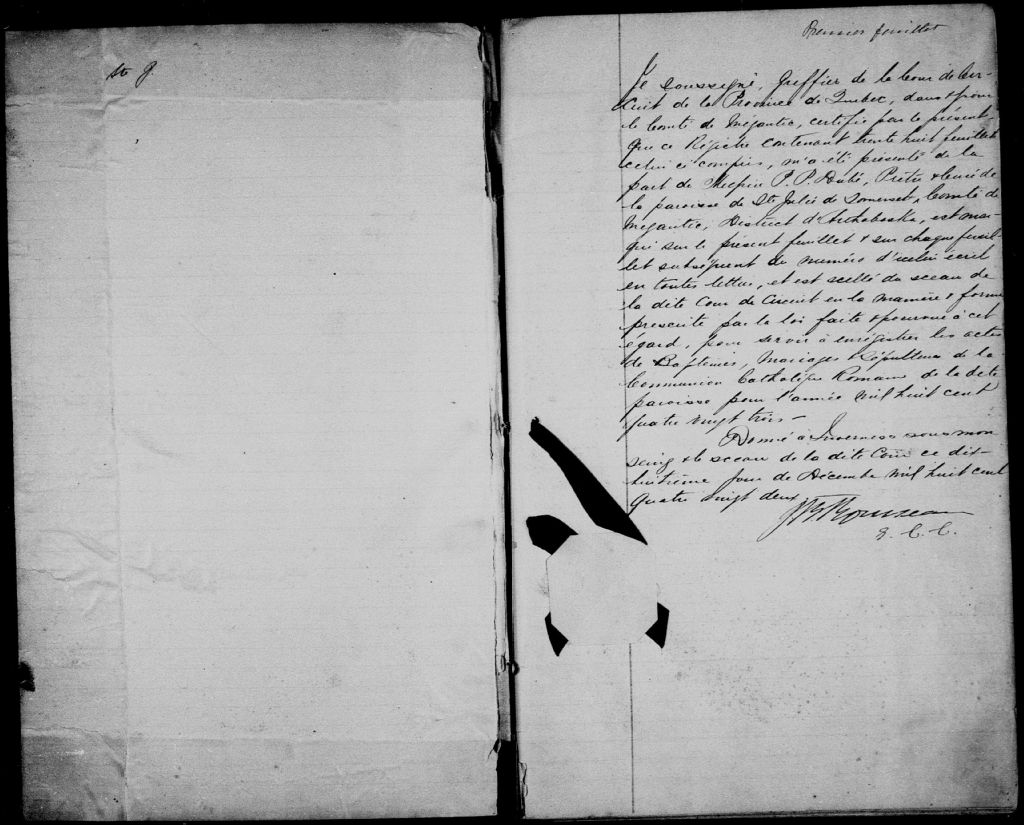 Ste J.
Premier feuillet
Je soussigné, Greffier de la Cour de Cir-
cuit de la Province de Quebec, dans & pour
le Comté de Mégantic, certifie par le présent
que ce Régistre contenant trente huit feuillets
celui ci compris, m'a été présenté de la
part de P. P. Dubé, Prêtre & Curé de
la paroisse de Ste Julie de Somerset, Comté de
Mégantic, District d'Arthabaska, est mar-
qué sur le présent feuillet & sur chaque feuil-
let subséquent du numéro d'icelui écrit
en toutes lettres, et est scellé du sceau de
la dite Cour de Circuit en la manière & forme
prescrite par la loi faite & pourvue à cet
égard, pour servir à enrégistrer les actes
de Baptêmes, Mariages & Sépultures de la
Communion Catholique Romaine de la dite
paroisse pour l'année mil huit cent
quatre vingt trois -
Donné à Inverness sous mon
seing & le sceau de la dite Cour ce dix-
huitième jour de Décembre mil huit cent
quatre vingt deux
Rousseau
G. C. C.